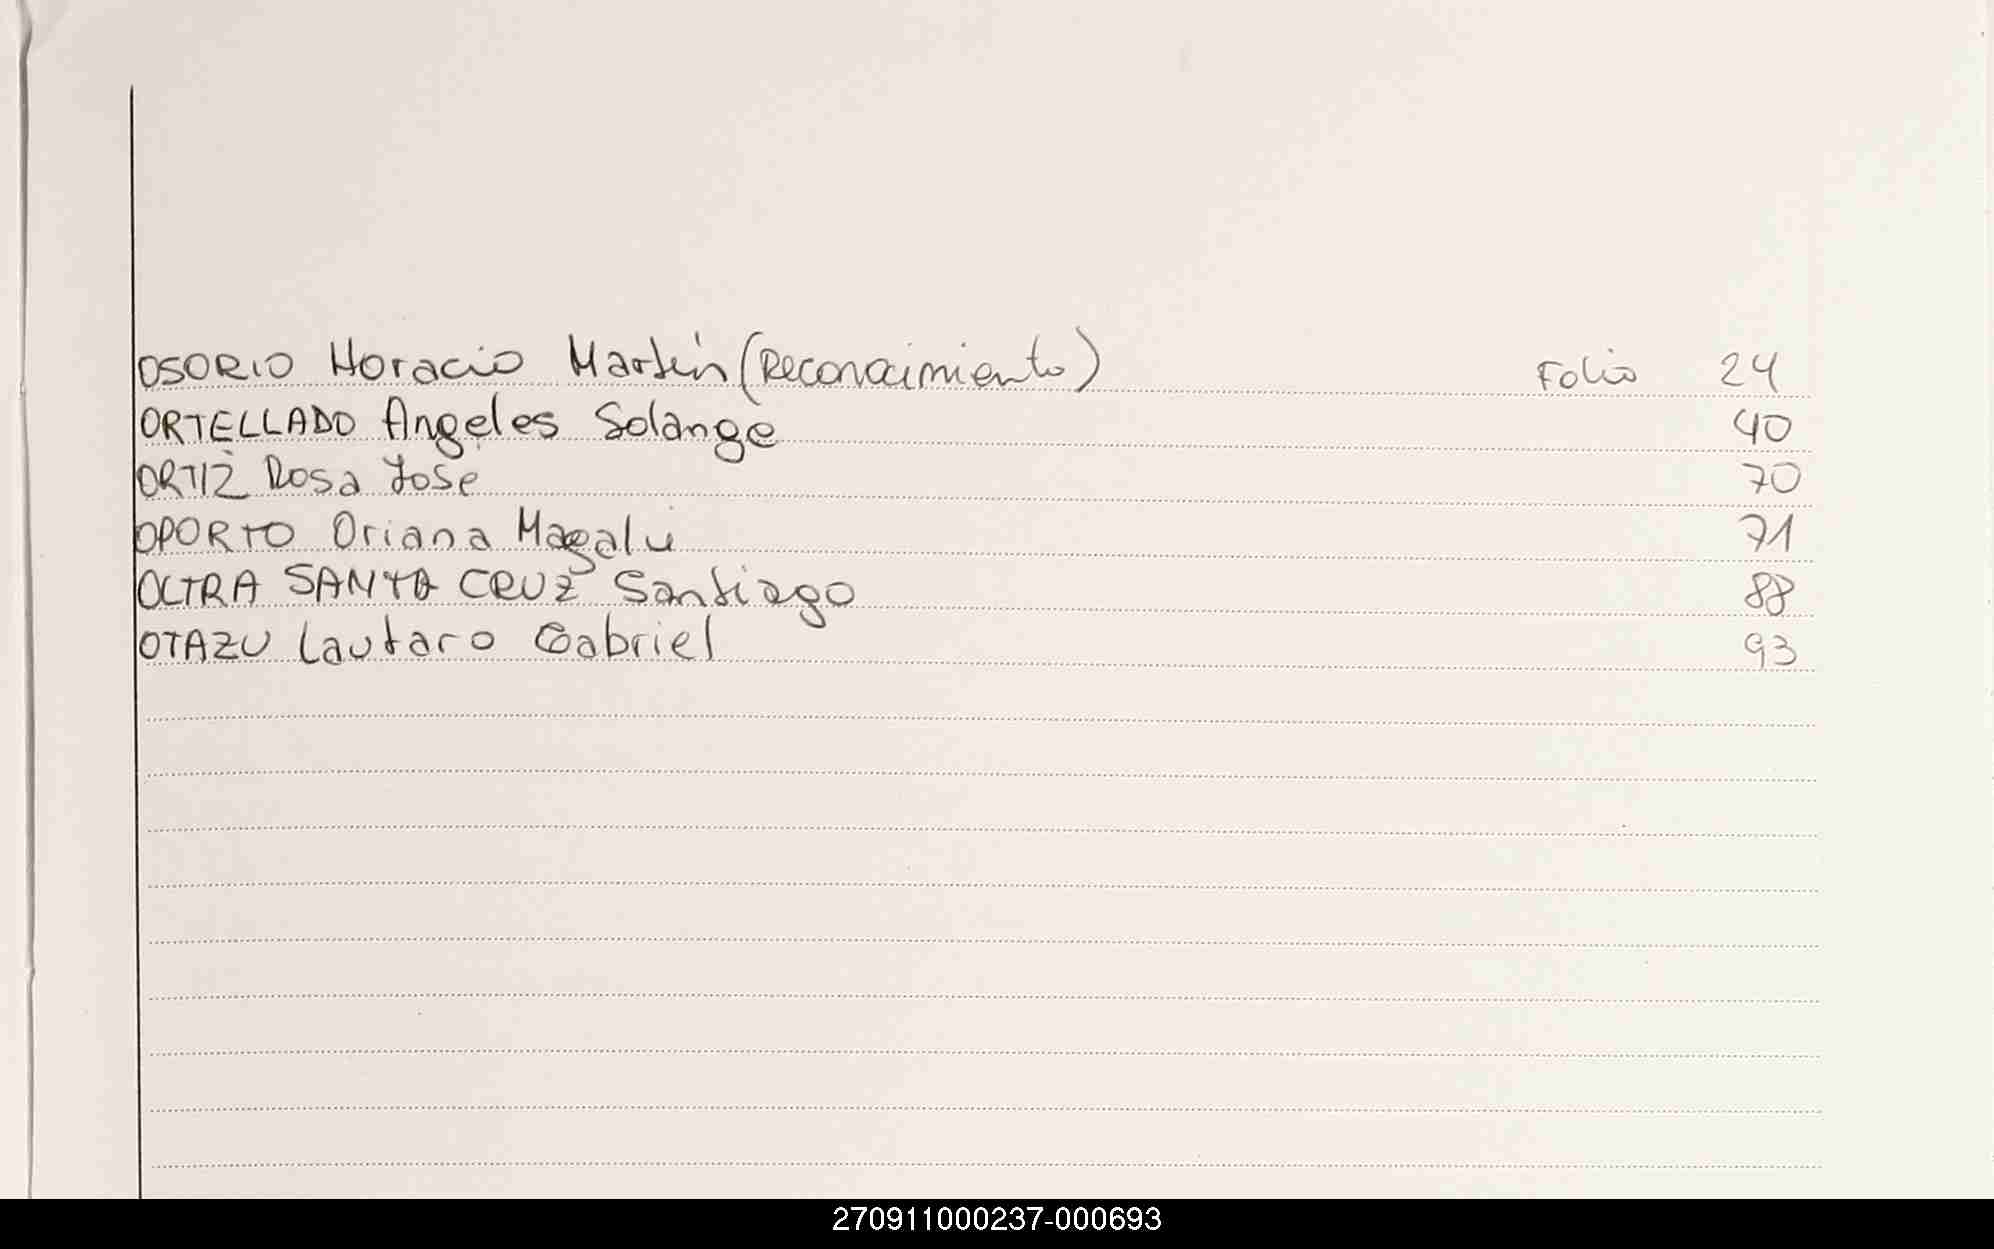 OSORIO Horacio Martín (Reconocimiento) Folio 24
ORTELLADO Angeles Solange 40
ORTIZ Rosa Jose 70
OPORTO Oriana Magali 71
OLTRA SANTA CRUZ Santiago 88
OTAZU Lautaro Gabriel 93
270911000237-000693